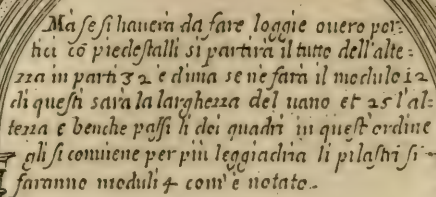 Ma se si hauera da fare loggie ouero por-
tici cō piedestalli si partira il tutto dell'alte-
zza in parti 32 e d'una se ne fara il modulo 12
di questi sara la larghezza del uano et 25 l'al-
tezza e benche passi li doi quadri in quest'ordine
gli si conuiene per più leggiadria li pilastri si-
faranno moduli 4 com'è notato.